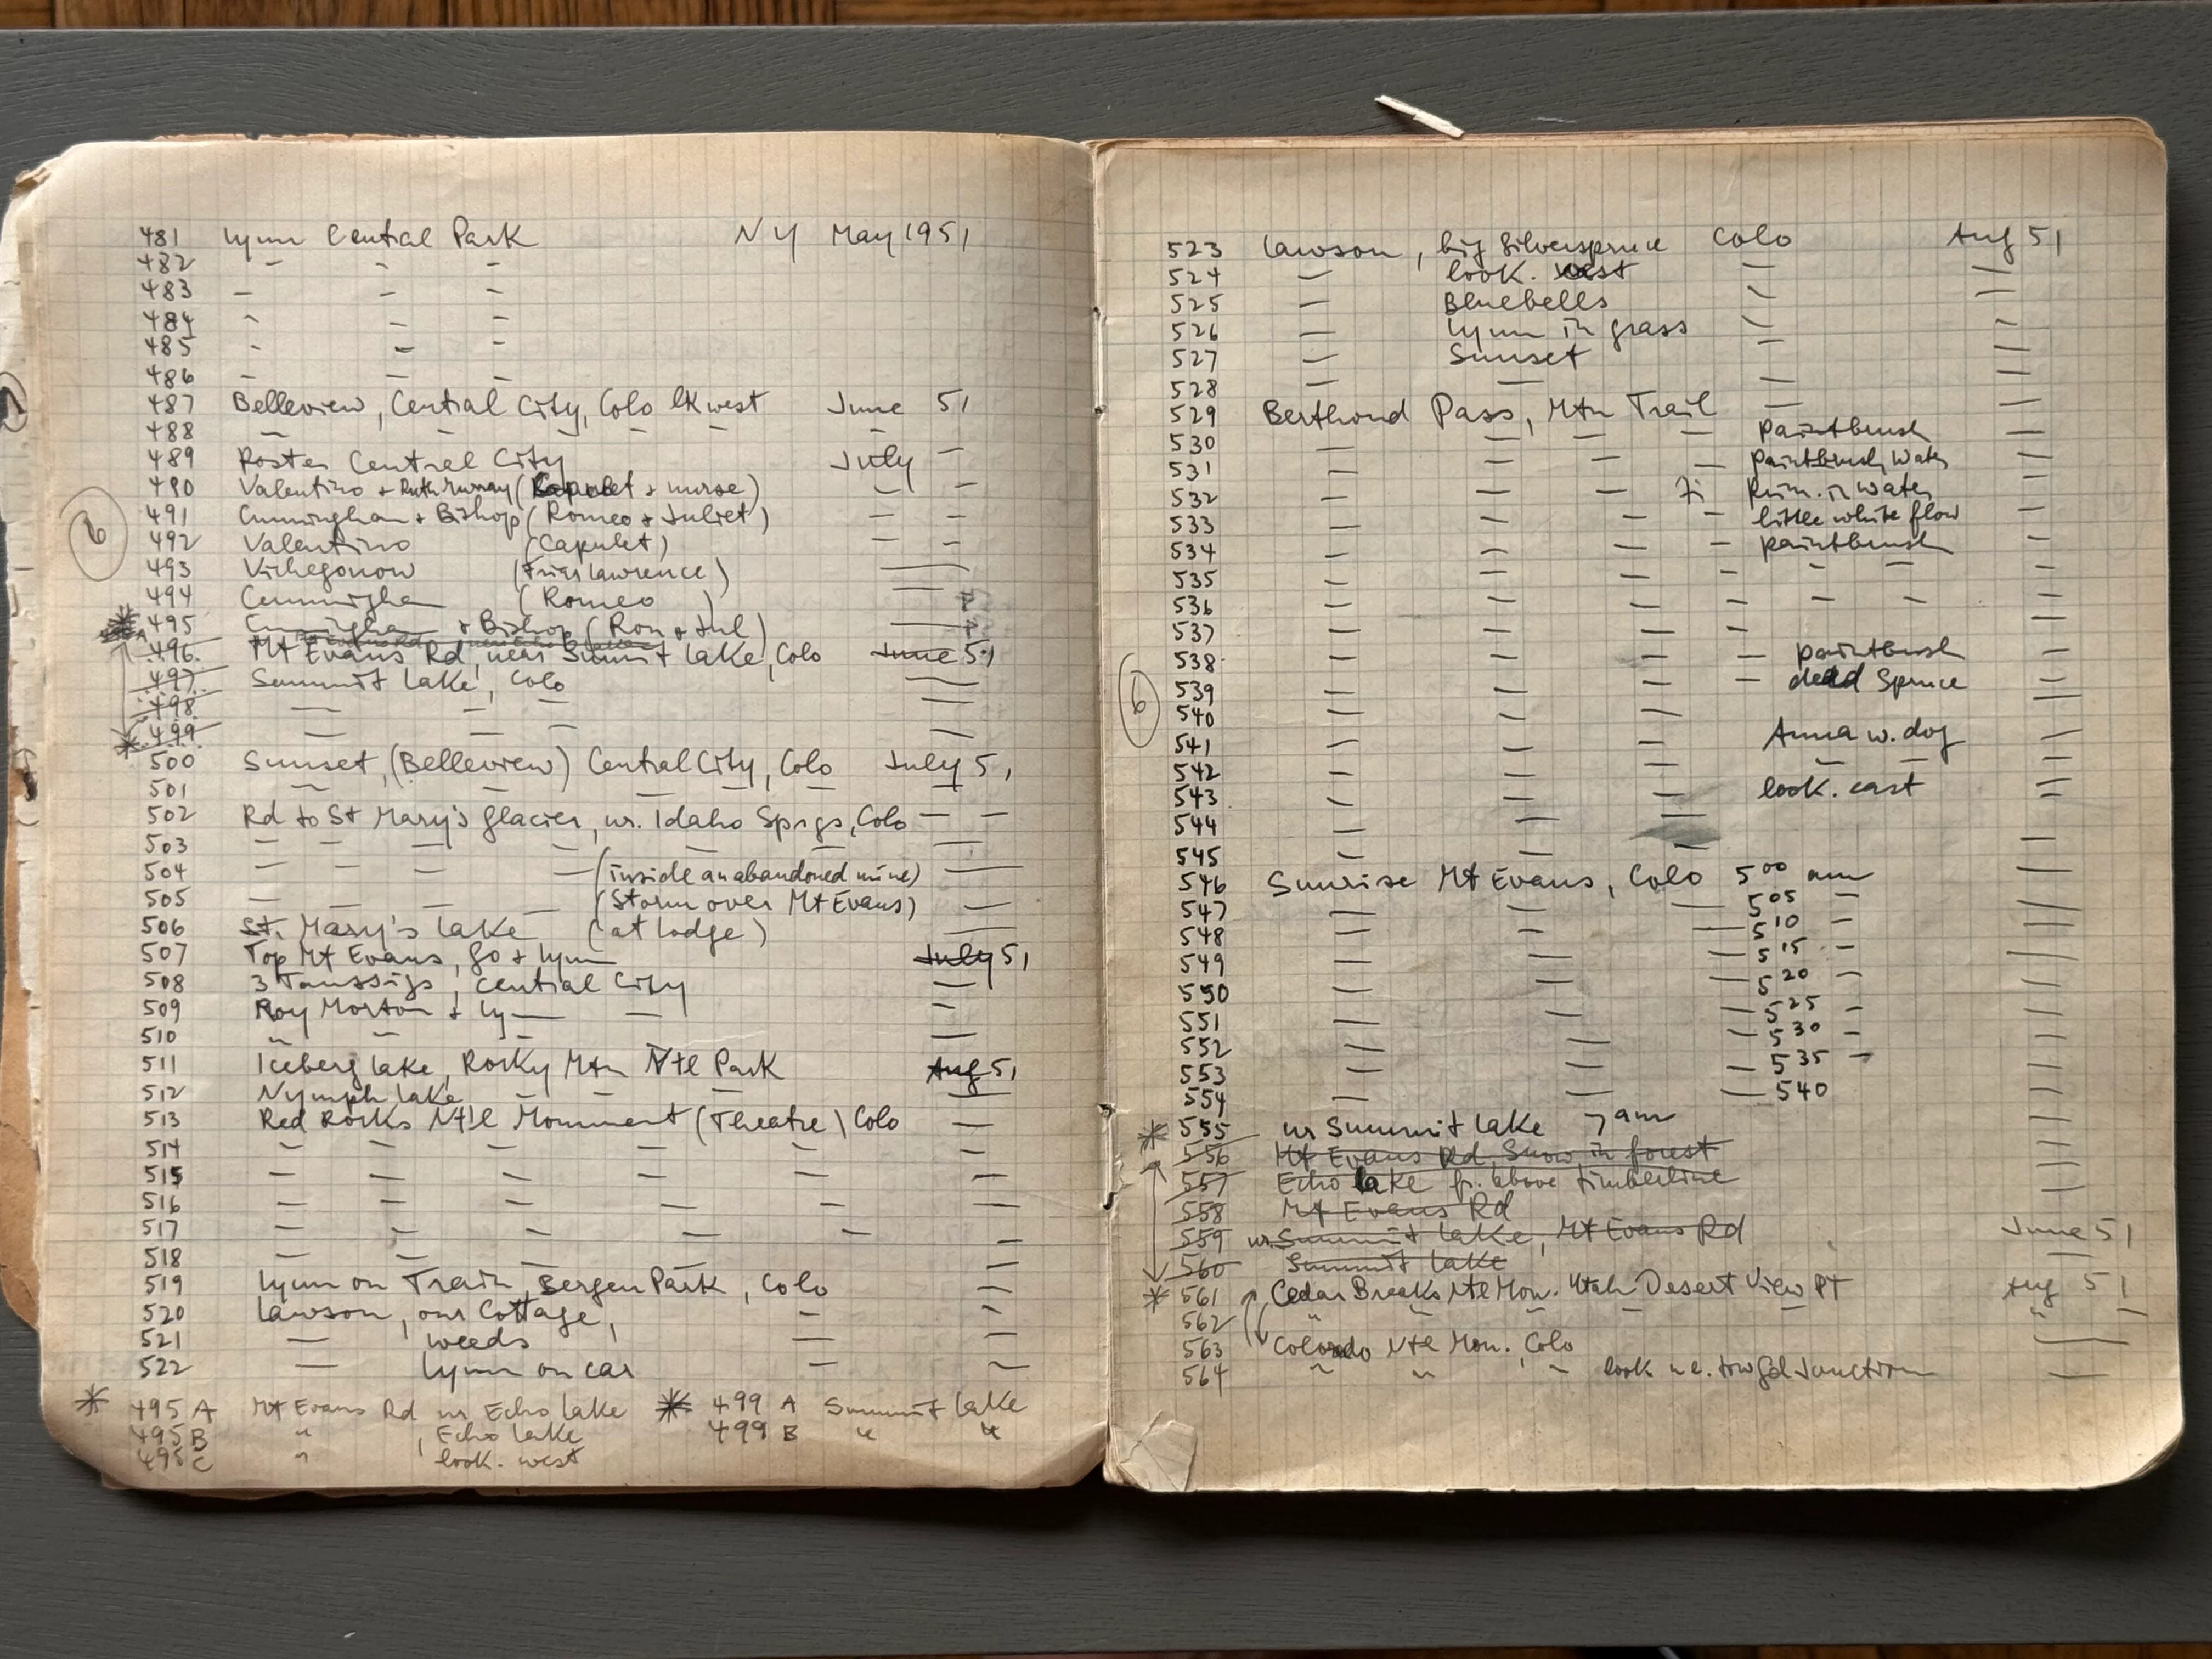 481 Lynn Central Park NY May 1951
482 - - -
483 - - -
484 - - -
485 - - -
486 - - -
487 Belleview, Central City, Colo lk west June 51
488 - - - - - -
489 Poster Central City July -
490 Valentino + Ruth Murray (Capulet + nurse) - -
491 Cunningham + Bishop (Romeo + Juliet) - -
492 Valentino (Capulet) - -
493 (Friar Lawrence) —
494 Cunningham (Romeo) —
495 Cunningham + Bishop (Rom + Jul) —
496 Mt Evans Rd, near Summit Lake, Colo June 51
497 Summit Lake, Colo —
498 - - - —
499 - - - —
500 Sunset, (Belleview) Central City, Colo July 51
501 - - - - - -
502 Rd to St Mary's Glacier, nr. Idaho Spgs, Colo - -
503 - - - - - - —
504 - - - - (inside an abandoned mine) —
505 - - - - (Storm over Mt Evans) —
506 St. Mary's Lake (at lodge) —
507 Top Mt Evans, Go + Lynn July 51
508 3 Taussigs, Central City —
509 Roy Morton + Ly— — -
510 " - - —
511 Iceberg Lake, Rocky Mtn Ntl Park Aug 51
512 Nymph Lake - - - —
513 Red Rocks Ntl Monument (Theatre) Colo —
514 - - - - - -
515 - - - - - -
516 - - - - - -
517 - - - - - -
518 - - - - - -
519 Lynn on Train, Bergen Park, Colo -
520 Lawson, our Cottage, - -
521 — weeds — -
522 — Lynn on car - -
* 495 A Mt Evans Rd nr Echo Lake * 499 A Summit Lake
495 B " , Echo Lake 499 B " "
495 C " look. west
6
523 Lawson, big Silverspruce Colo Aug 51
524 - look. west - -
525 - Bluebells - -
526 - Lynn in grass - -
527 - Sunset - -
528 - - - -
529 Berthoud Pass, Mtn Trail - -
530 - - - - paintbrush -
531 - - - - paintbrush, water -
532 - - - in water -
533 - - - - little white flow -
534 - - - - paintbrush -
535 - - - - - - - -
536 - - - - - - - -
537 - - - - -
538 - - - - paintbrush -
539 - - - - dead Spruce -
540 - - - -
541 - - - Anna w. dog -
542 - - - - - -
543 - - - look. east -
544 - - - -
545 - - - -
546 Sunrise Mt Evans, Colo 5 00 am —
547 - - - 5 05 - —
548 - - - 5 10 - —
549 - - - 5 15 - —
550 - - - 5 20 - —
551 - - - 5 25 - —
552 - - - 5 30 - —
553 - - - 5 35 - —
554 - - - 5 40 —
* 555 nr Summit Lake 7 am —
556 Mt Evans Rd Snow in forest —
557 Echo Lake fr. above timberline —
558 Mt Evans Rd
559 nr. Summit Lake, Mt Evans Rd June 51
560 Summit Lake —
* 561 Cedar Breaks Ntl Mon. Utah Desert View Pt Aug 51
562 " - - - - " -
563 Colorado Ntl Mon. Colo —
564 - " - look w. Junction —
6